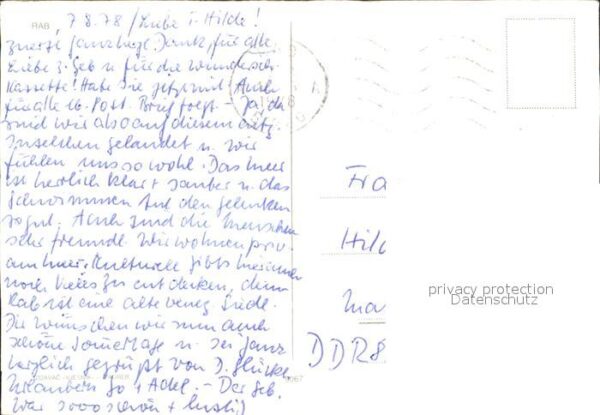 RAB
7.8.78 / Liebe i. Hilde!
zuerst ganz herzl. Dank für alle
Liebe z. Geb u. für die wundersch.
Kassette! Habe sie jetzt mit. Auch
für alle lb. Post. Brief folgt. – Ja da
sind wir also auf diesem netz.
Inselchen gelandet u. wir
fühlen uns so wohl. Das Meer
ist herrlich klar + sauber u. das
Schwimmen tut den Gelenken
so gut. Auch sind die Menschen
sehr freundl. Wir wohnen priv.
am Meer. Kulturell gibts hier immer
noch Neues zu entdecken, denn
Rab ist eine alte venez. Siedl.
Dir wünschen wir nun auch
schöne Sommertage u. sei ganz
herzlich gegrüßt von D. glückl.
Urlaubern + Adel. – Der Geb.
war sooo schön + lustig
Fra
Hild
Ma
DDR 8
privacy protection
Datenschutz